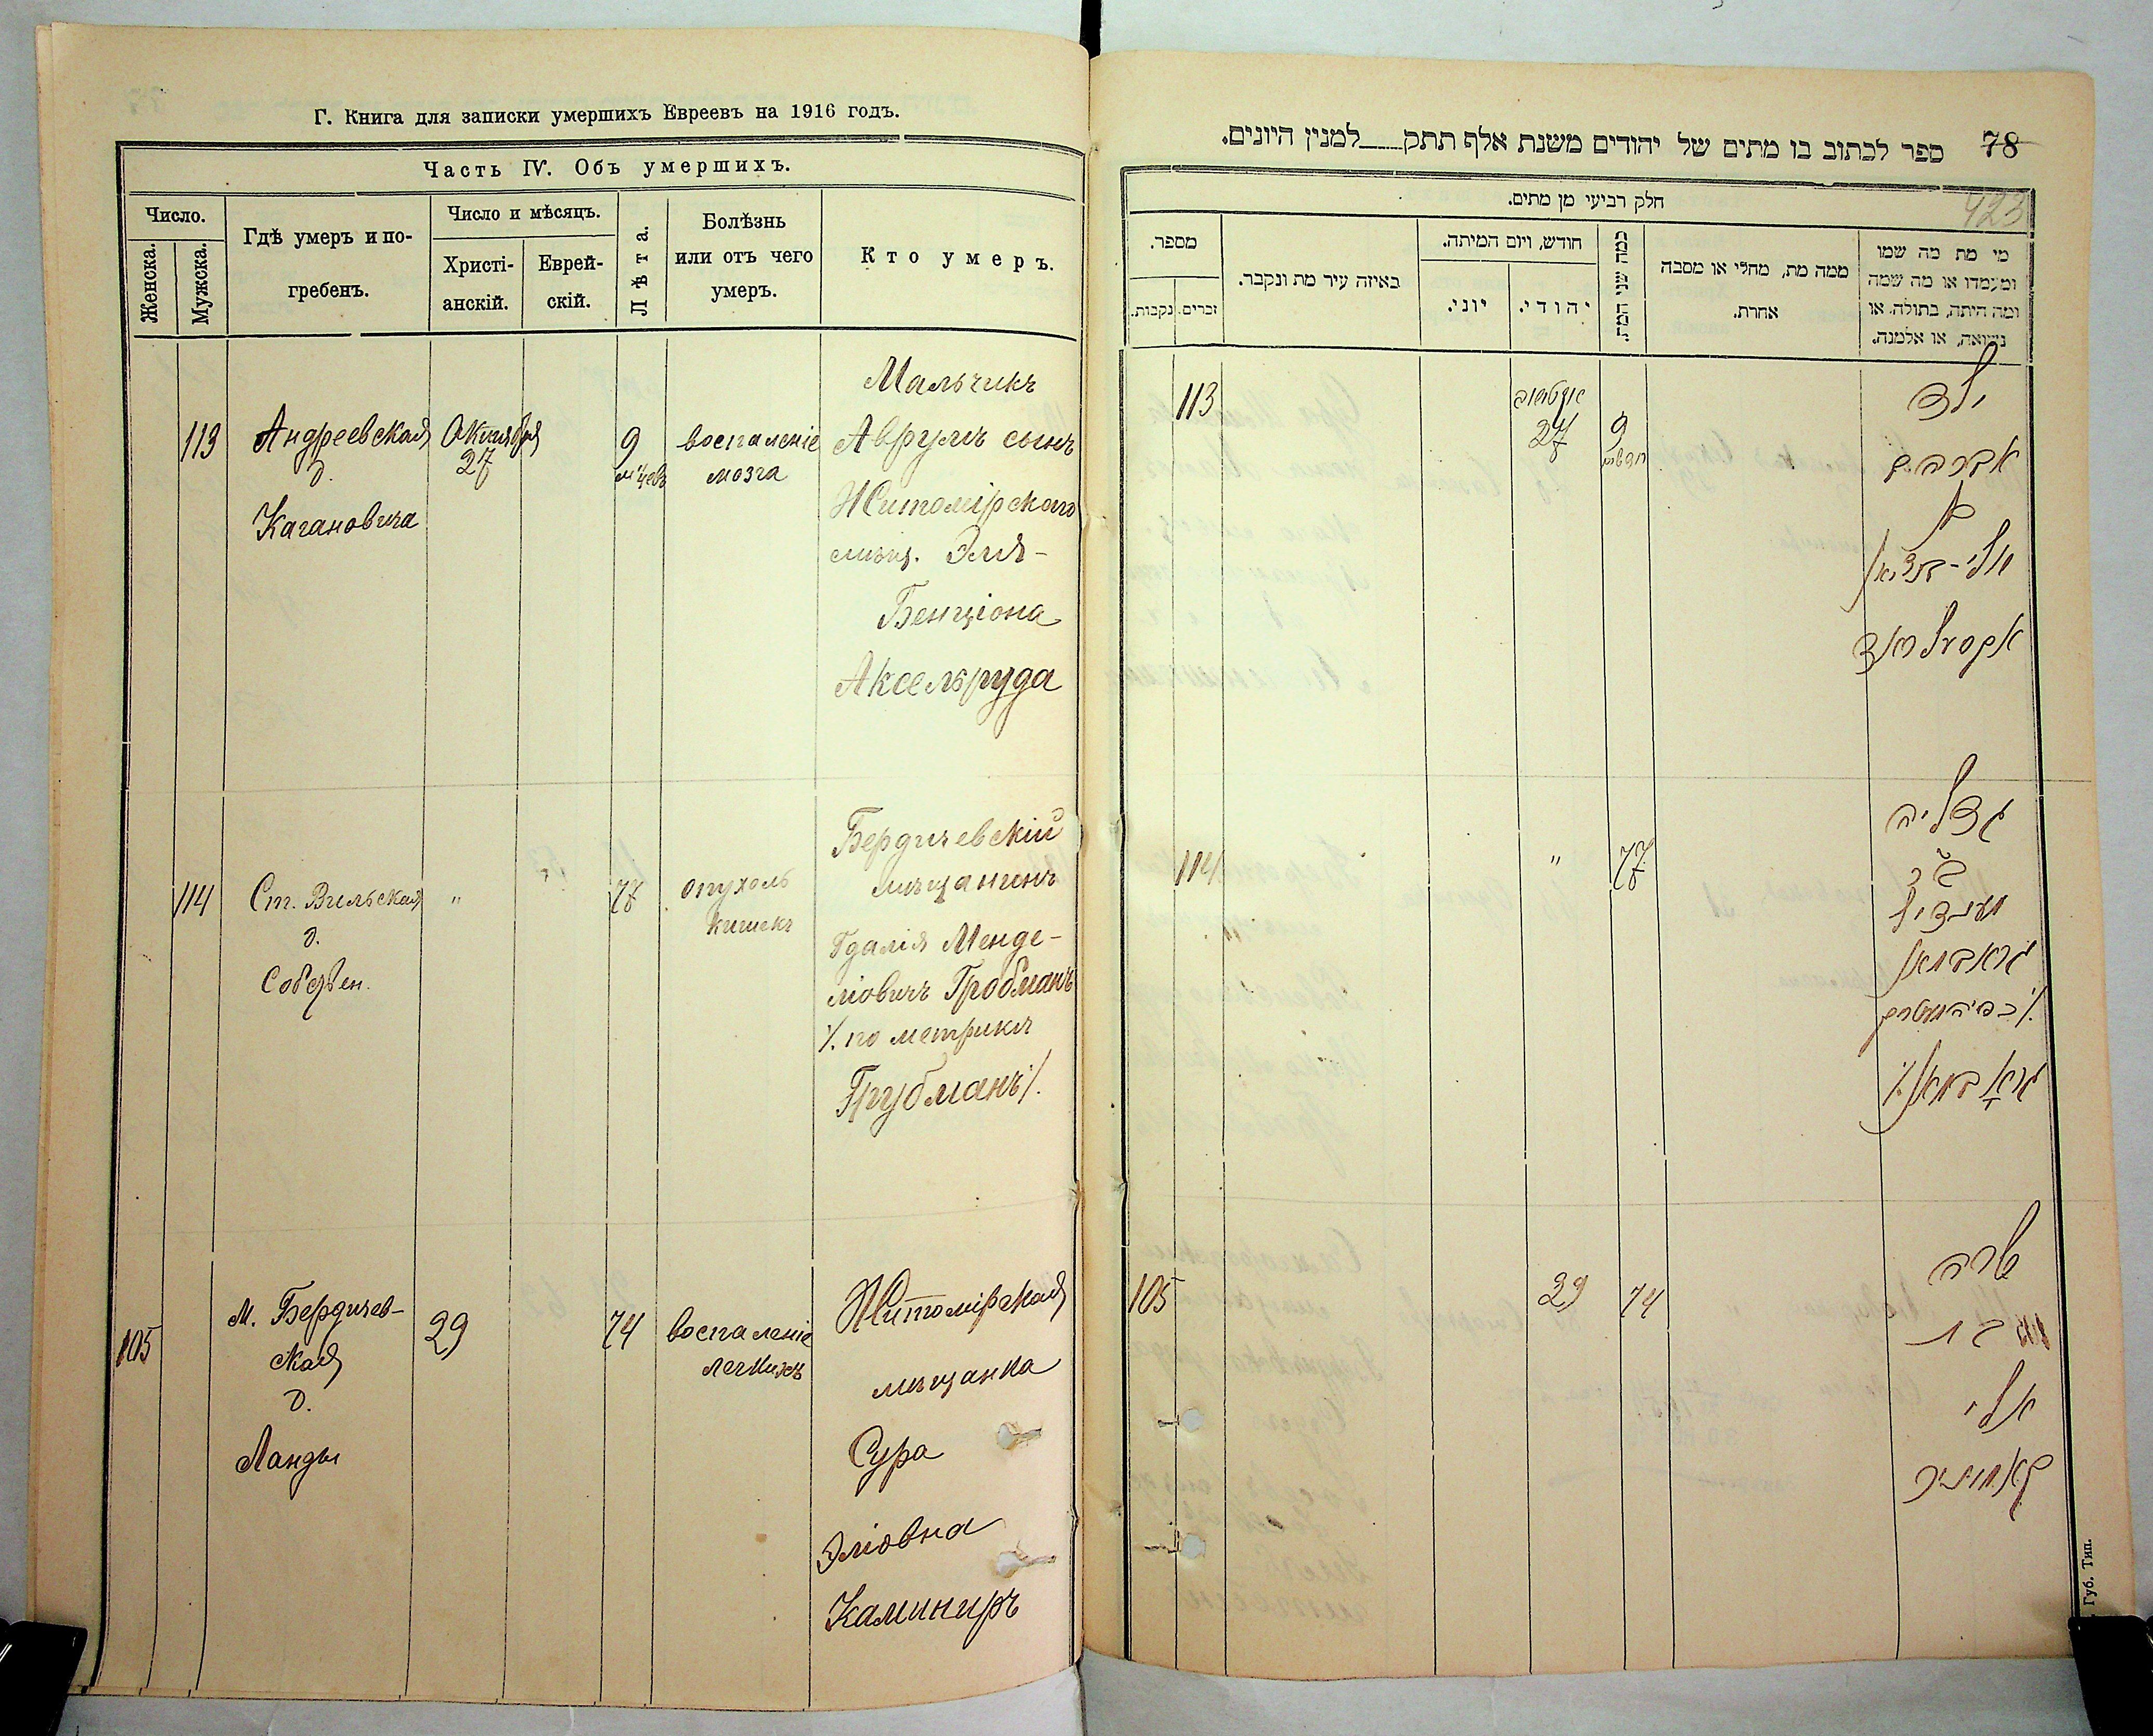 Г. Книга для записки умершихъ Евреевъ на 1916 годъ.
Часть IV. Объ умершихъ.
Число.
Женска.
Мужска.
Гдѣ умеръ и по-
гребенъ.
Число и мѣсяцъ.
Христі-
анскій.
Еврей-
скій.
Лѣта.
Болѣзнь
или отъ чего
умеръ.
Кто умеръ.
113
Андреевская
д.
Кагановича
Октября
27
9
м-цевъ
воспаленіе
мозга
Мальчикъ
Аврумъ сынъ
Житомірскаго
мѣщ. Эля-
Бенціона
Аксельруда
114
Ст. Вильская
д.
Собствен.
"
77
опухоль
кишекъ
Бердичевскій
мѣщанинъ
Гдалія Менде-
ліовичъ Гробманъ
/. по метрикѣ
Грубманъ /.
105
М. Бердичев-
ская
д.
Ланды
29
74
воспаленіе
легкихъ
Житомірская
мѣщанка
Сура
Эліовна
Каминиръ
78
ספר לכתוב בו מתים של יהודים משנת אלף תתק___למנין היונים.
423
חלק רביעי מן מתים.
מי מת מה שמו
ומעמדו או מה שמה
ומה היתה, בתולה, או
נשואה, או אלמנה.
ממה מת, מחלי או מסבה
אחרת.
כמה שני המת.
חודש, ויום המיתה.
יהודי.
יוני.
באיזה עיר מת ונקבר.
מספר.
זכרים.
נקבות.
ילד
אברהם
בן
אלי-בנציאן
אקסעלראד
9
27
113
גדליה
מענדיל
גראבמאן
גראָבמאן /.
77
"
114
שרה
בת
אלי
קאמיניר
74
29
105
Губ. Тип.